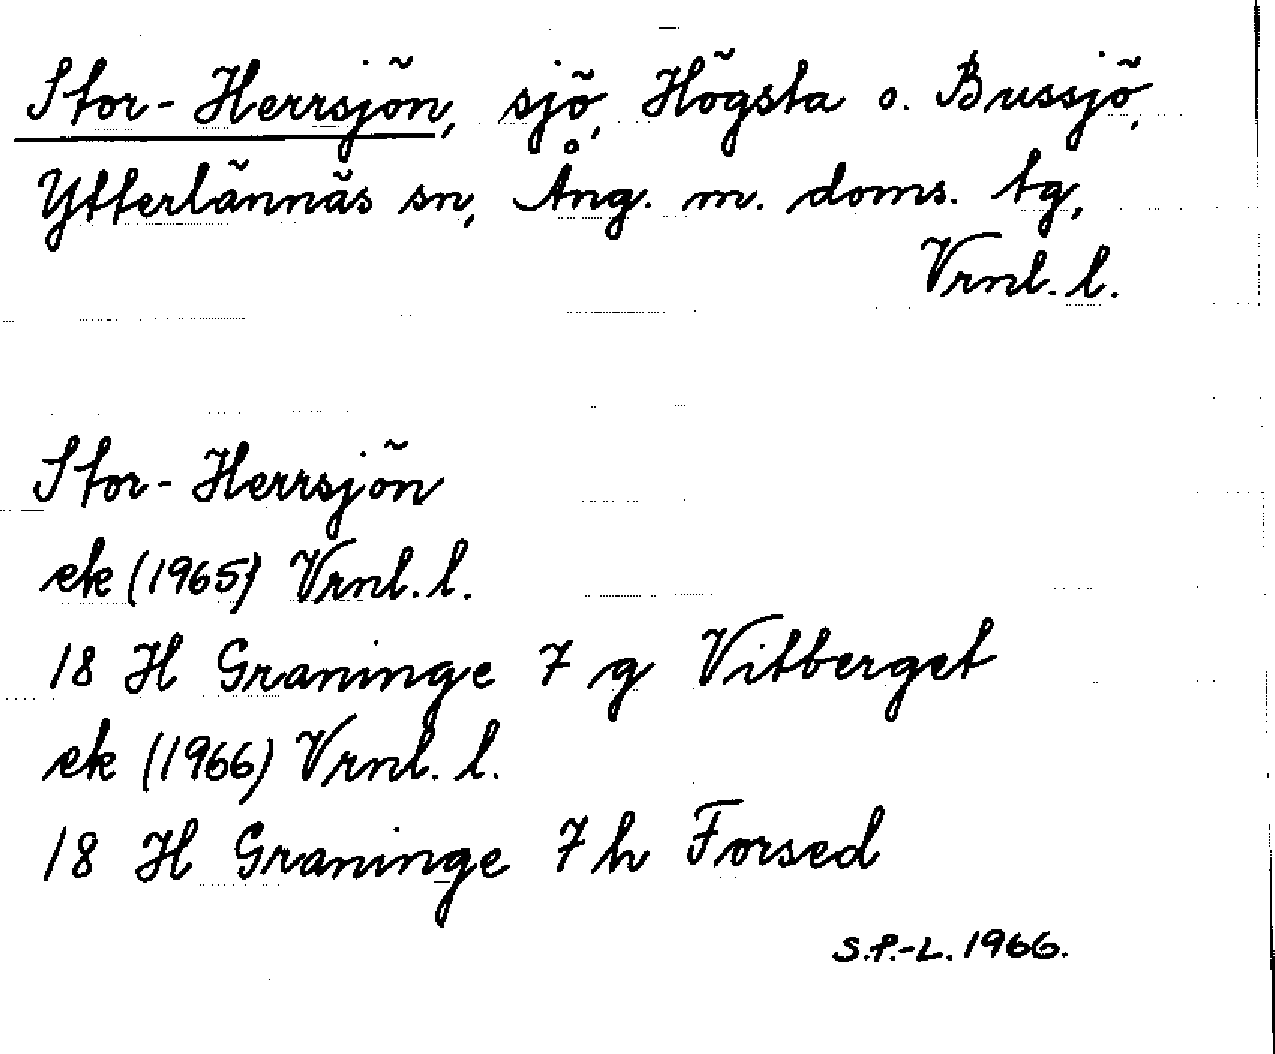 Stor-Herrsjön, sjö, Högsta o. Bussjö,
Ytterlännäs sn, Ång. m. doms. tg,
Vrnl. l.
Stor-Herrsjön
ek (1965) Vrnl. l.
18 H Graninge 7 g Vitberget
ek (1966) Vrnl. l.
18 H Graninge 7 h Forsed
S.P.-L. 1966.